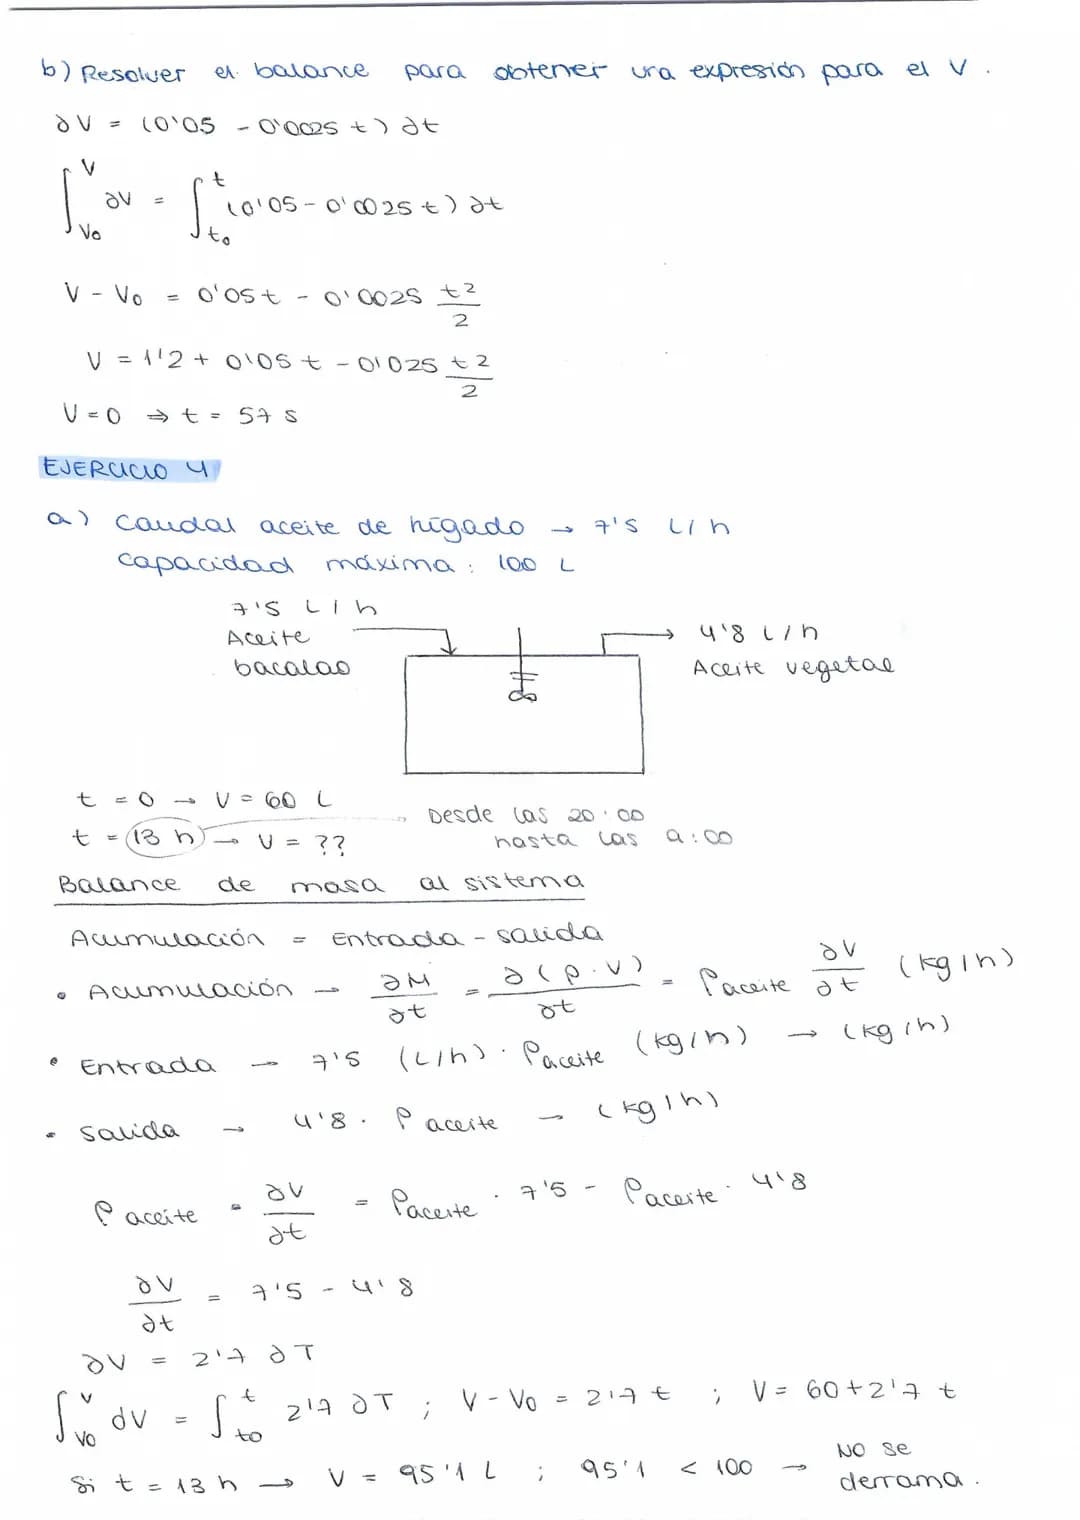 b) Resolver el balance para obtener una expresión para el V.
∂V = (0'05 - 0'0025 t) ∂t
∫_{V₀}^{V} ∂V = ∫_{t₀}^{t} (0'05 - 0'0025 t) ∂t
V - V₀ = 0'05t - 0'0025 t²/2
V = 1'2 + 0'05 t - 0'025 t²/2
V = 0 ⇒ t = 57 s
EJERCICIO 4
a) Caudal aceite de hígado → 7'5 L/h
Capacidad máxima: 100 L
7'5 L/h
Aceite
bacalao
4'8 L/h
Aceite vegetal
t = 0 → V = 60 L
t = 13 h → V = ??
Desde las 20:00
hasta las 9:00
Balance de masa al sistema
Acumulación = Entrada - salida
• Acumulación → ∂M/∂t = ∂(ρ·V)/∂t = ρaceite ∂V/∂t (kg/h)
• Entrada → 7'5 (L/h) · ρaceite (kg/h) → (kg/h)
• Salida → 4'8 · ρaceite → (kg/h)
ρaceite · ∂V/∂t = ρaceite · 7'5 - ρaceite · 4'8
∂V/∂t = 7'5 - 4'8
∂V = 2'7 ∂T
∫_{V₀}^{V} dV = ∫_{t₀}^{t} 2'7 ∂T ; V - V₀ = 2'7 t ; V = 60 + 2'7 t
Si t = 13 h → V = 95'1 L ; 95'1 < 100 → No se derrama.